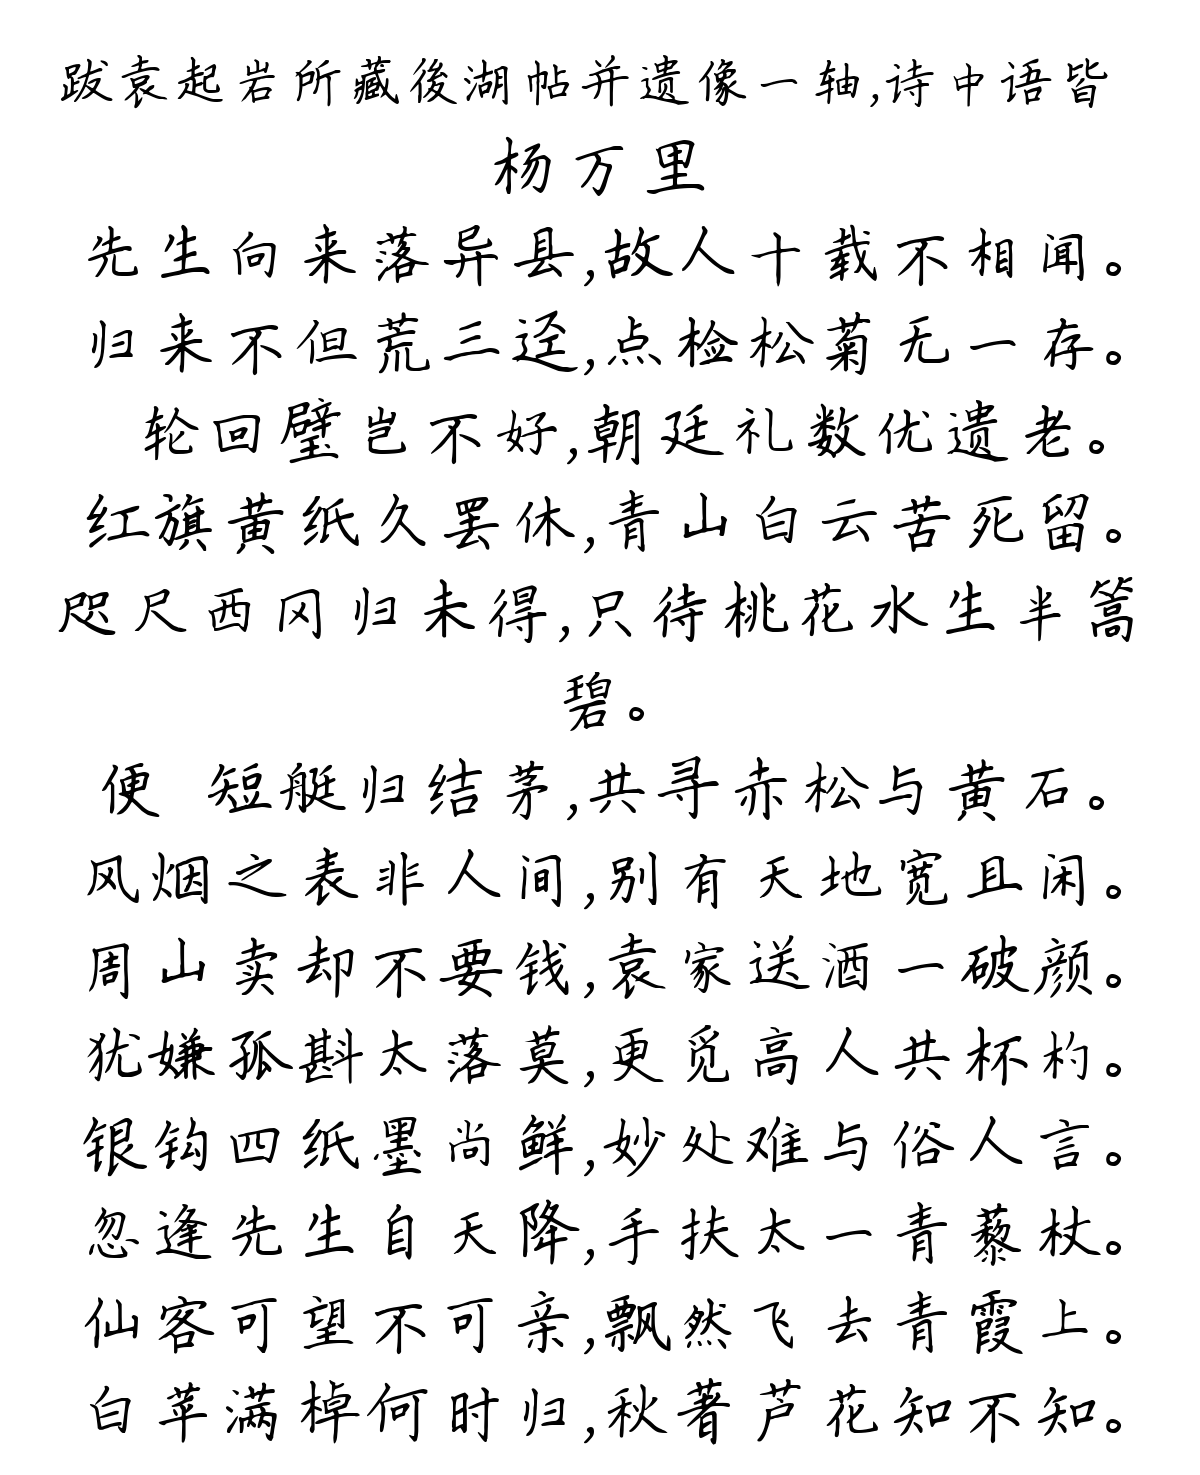 跋袁起岩所藏後湖帖并遗像一轴,诗中语皆
杨万里
先生向来落异县,故人十载不相闻。
归来不但荒三迳,点检松菊无一存。
轮回璧岂不好,朝廷礼数优遗老。
红旗黄纸久罢休,青山白云苦死留。
咫尺西冈归未得,只待桃花水生半篙
碧。
便 短艇归结茅,共寻赤松与黄石。
风烟之表非人间,别有天地宽且闲。
周山卖却不要钱,袁家送酒一破颜。
犹嫌孤斟太落莫,更觅高人共杯杓。
银钩四纸墨尚鲜,妙处难与俗人言。
忽逢先生自天降,手扶太一青藜杖。
仙客可望不可亲,飘然飞去青霞上。
白苹满棹何时归,秋著芦花知不知。